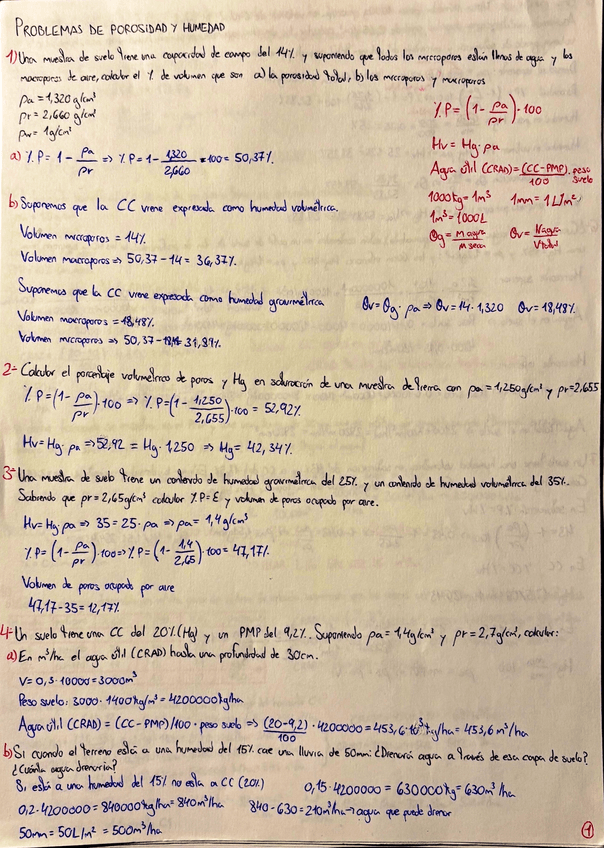 PROBLEMAS DE POROSIDAD Y HUMEDAD
1) Una muestra de suelo tiene una capacidad de campo del 14% y suponiendo que todos los microporos están llenos de agua y los
macroporos de aire, calcular el % de volumen que son a) la porosidad total, b) los microporos y macroporos
ρa = 1,320 g/cm³
ρr = 2,660 g/cm³
ρw = 1g/cm³
% P = (1 - ρa/ρr) · 100
Hv = Hg · ρa
Agua útil (CRAD) = (CC-PMP)/100 · peso suelo
1000kg = 1m³ 1mm = 1L/m²
1m³ = 1000L
θg = m agua/m seca θv = Vagua/Vtotal
a) % P = 1 - ρa/ρr => % P = 1 - 1,320/2,660 · 100 = 50,37%
b) Suponemos que la CC viene expresada como humedad volumétrica.
Volumen microporos = 14%
Volumen macroporos => 50,37 - 14 = 36,37%
Suponemos que la CC viene expresada como humedad gravimétrica θv = θg · ρa => θv = 14 · 1,320 θv = 18,48%
Volumen macroporos = 18,48%
Volumen microporos => 50,37 - 18,48 31,89%
2- Calcular el porcentaje volumétrico de poros y Hg en saturación de una muestra de tierra con ρa = 1,250g/cm³ y ρr = 2,655
% P = (1 - ρa/ρr) · 100 => % P = (1 - 1,250/2,655) · 100 = 52,92%
Hv = Hg · ρa => 52,92 = Hg · 1,250 => Hg = 42,34%
3- Una muestra de suelo tiene un contenido de humedad gravimétrica del 25% y un contenido de humedad volumétrica del 35%.
Sabiendo que ρr = 2,65g/cm³ calcular % P = E y volumen de poros ocupado por aire.
Hv = Hg · ρa => 35 = 25 · ρa => ρa = 1,4g/cm³
% P = (1 - ρa/ρr) · 100 => % P = (1 - 1,4/2,65) · 100 = 47,17%
Volumen de poros ocupado por aire
47,17 - 35 = 12,17%
4- Un suelo tiene una CC del 20% (Hg) y un PMP del 9,2%. Suponiendo ρa = 1,4g/cm³ y ρr = 2,7g/cm³, calcular:
a) En m³/ha el agua útil (CRAD) hasta una profundidad de 30cm.
V = 0,3 · 10000 = 3000m³
Peso suelo: 3000 · 1400kg/m³ = 4200000kg/ha
Agua útil (CRAD) = (CC-PMP)/100 · peso suelo => (20-9,2)/100 · 4200000 = 453,6·10³kg/ha = 453,6 m³/ha
b) Si cuando el terreno está a una humedad del 15% cae una lluvia de 50mm: ¿Drenará agua a través de esa capa de suelo?
¿Cuánta agua drenaría?
Si está a una humedad del 15% no está a CC (20%) 0,15 · 4200000 = 630000kg = 630m³/ha
0,2 · 4200000 = 840000kg/ha = 840m³/ha 840 - 630 = 210m³/ha → agua que puede drenar
50mm = 50L/m² = 500m³/ha
1